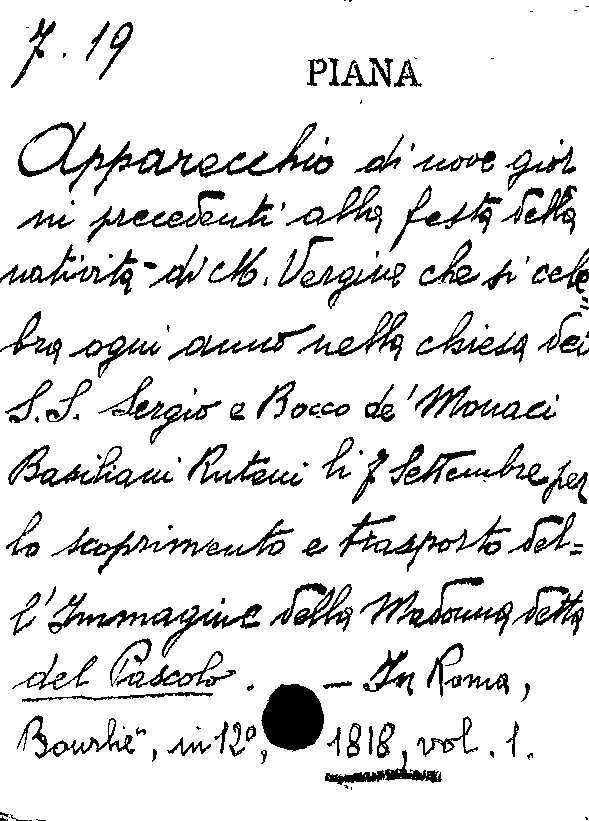 7.19
PIANA
Apparecchio di nove gior
ni precedenti alla festa della
natività di M. Vergine che si cele=
bra ogni anno nella chiesa dei
S.S. Sergio e Bacco de' Monaci
Basiliani Ruteni li 7 Settembre per
lo scoprimento e trasporto del=
l'Immagine della Madonna detta
del Pascolo. — In Roma,
Bourlié, in 12°, 1818, vol. 1.